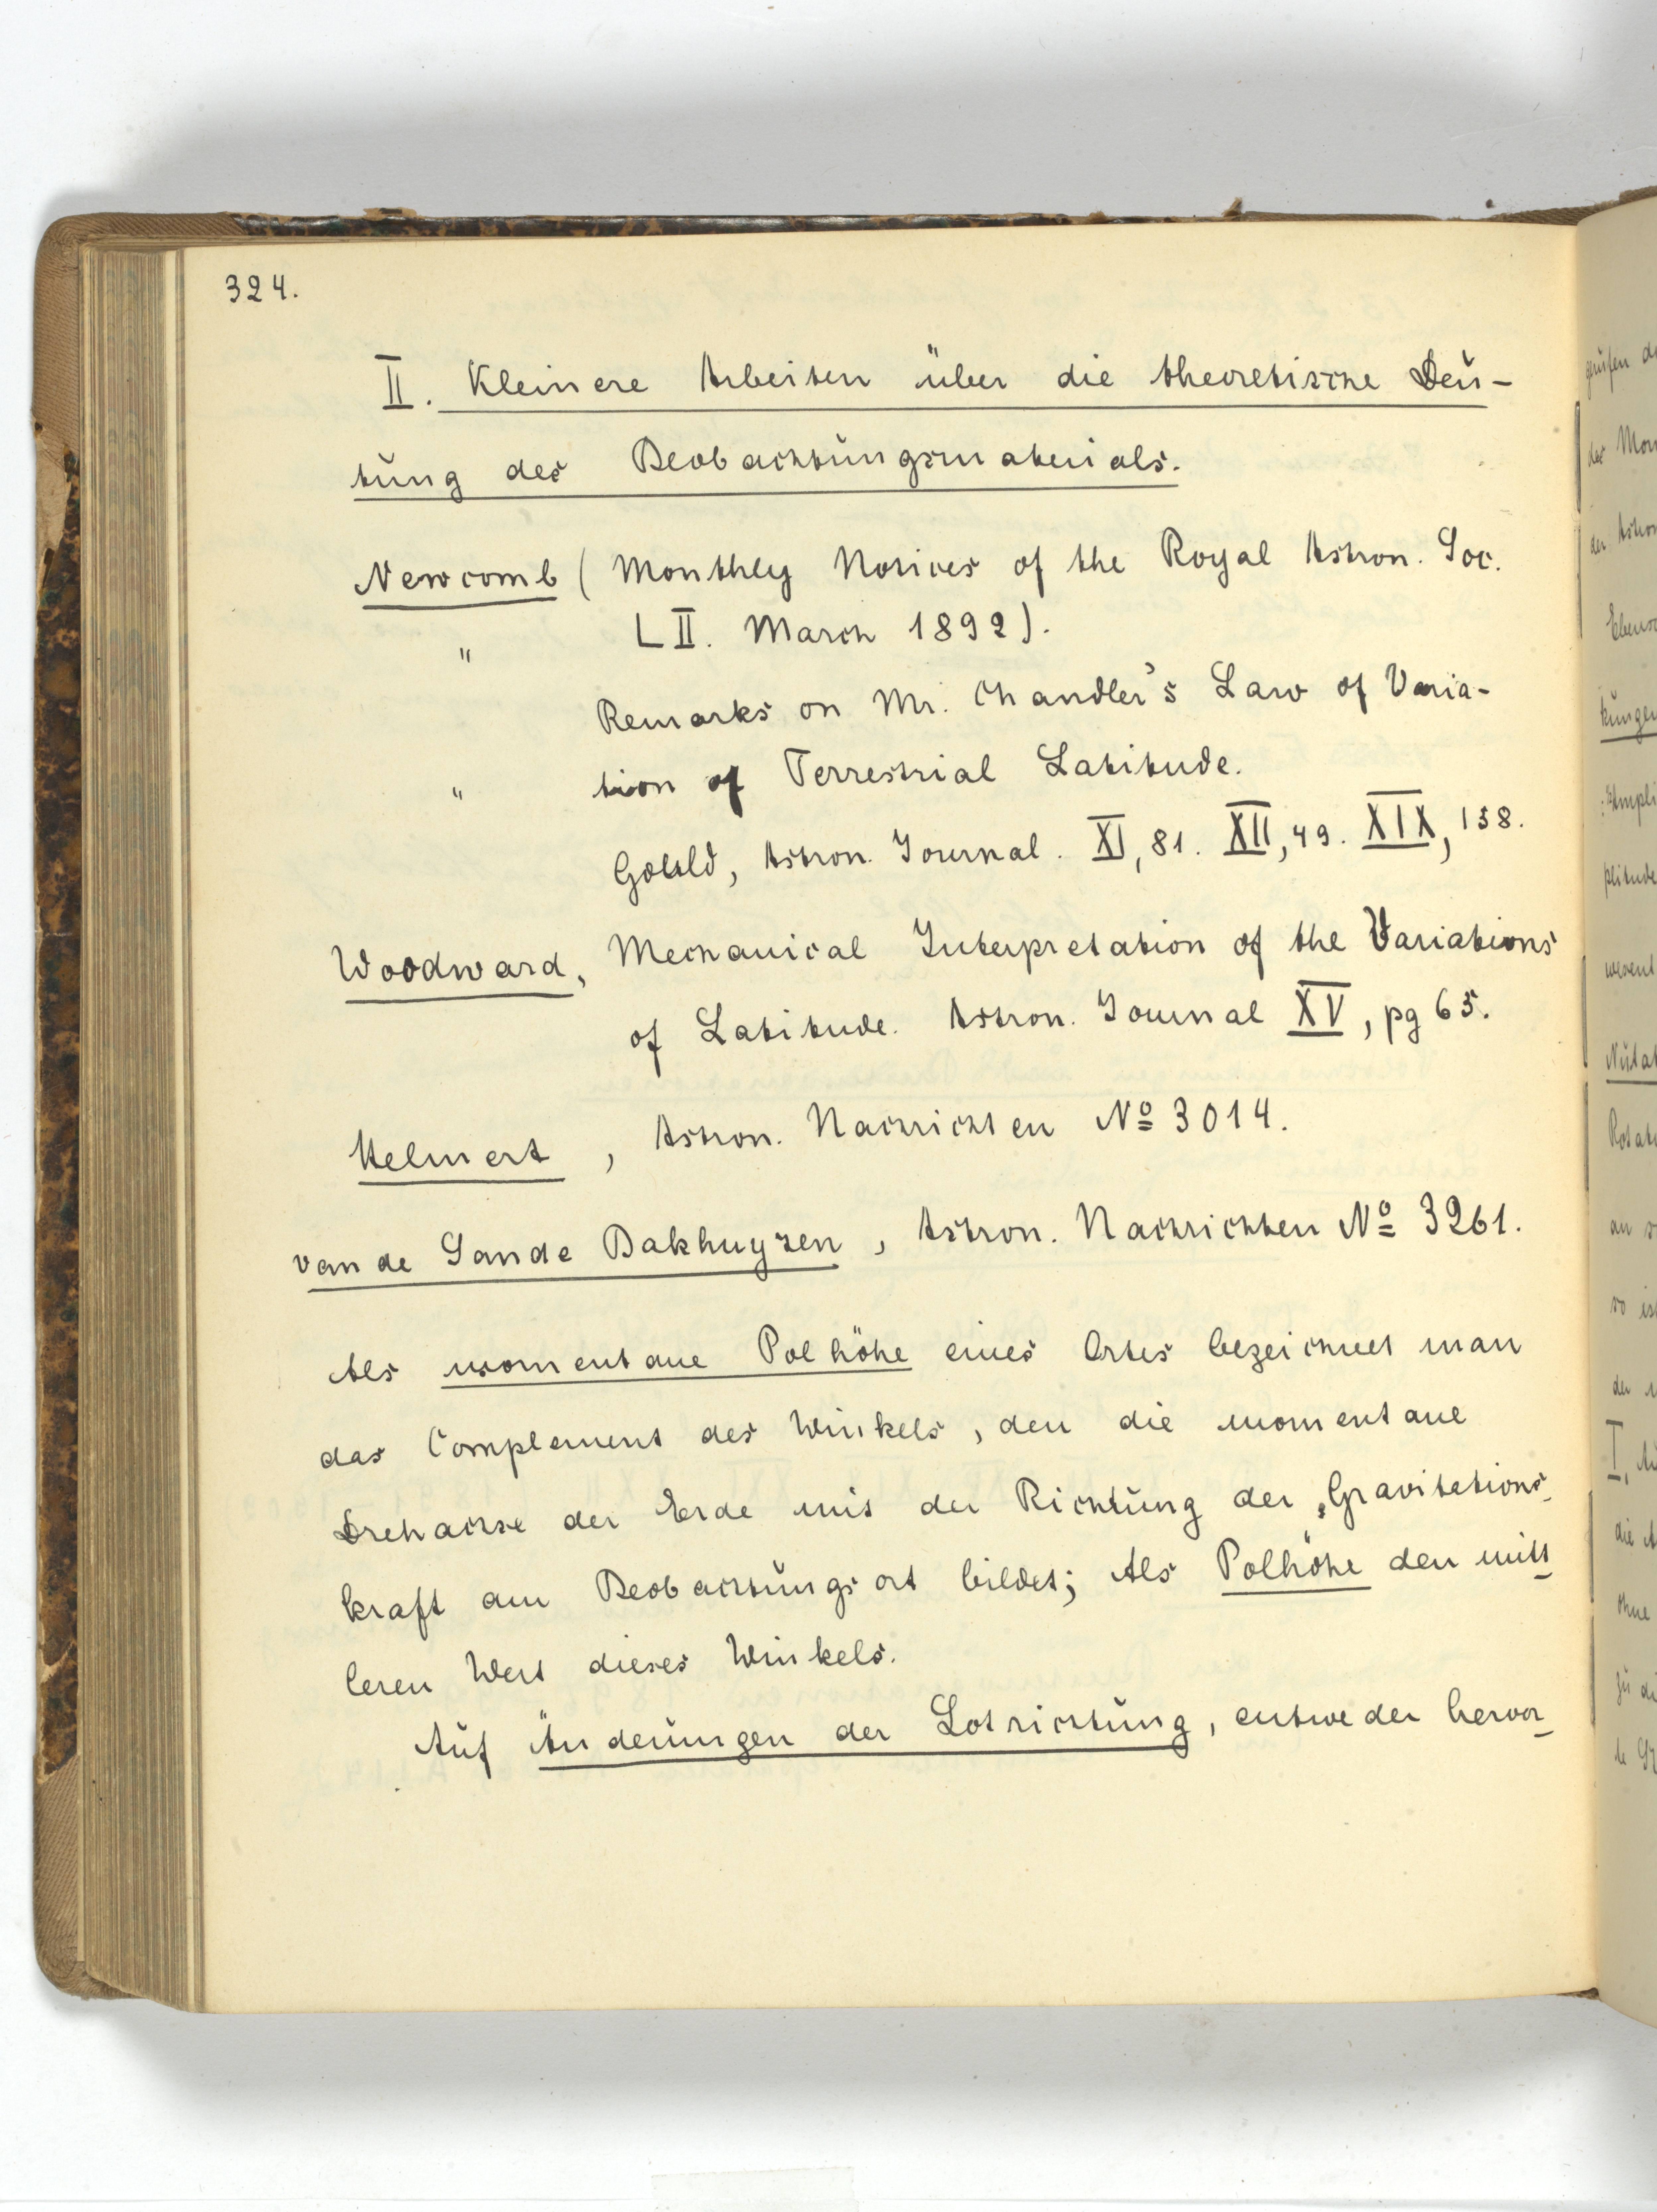 324.
II. Kleinere Arbeiten über die theoretische Deu-
tung des Beobachtungsmaterials.
Newcomb (Monthly Notices of the Royal Astron. Soc.
" LII. March 1892).
Remarks on Mr. Chandler's Law of Varia-
" tion of Terrestrial Latitude.
Gould, Astron. Journal. XI, 81. XII, 49. XIX, 158.
Woodward, Mechanical Interpretation of the Variations
of Latitude. Astron. Journal XV, pg 65.
Helmert, Astron. Nachrichten No 3014.
van de Sande Bakhuyzen, Astron. Nachrichten No 3261.
Als momentane Polhöhe eines Ortes bezeichnet man
das Complement des Winkels, den die momentane
Drehachse der Erde mit der Richtung der Gravitations-
kraft am Beobachtungsort bildet; Als Polhöhe den mitt-
leren Wert dieses Winkels.
Auf Änderungen der Lotrichtung, entweder hervor-